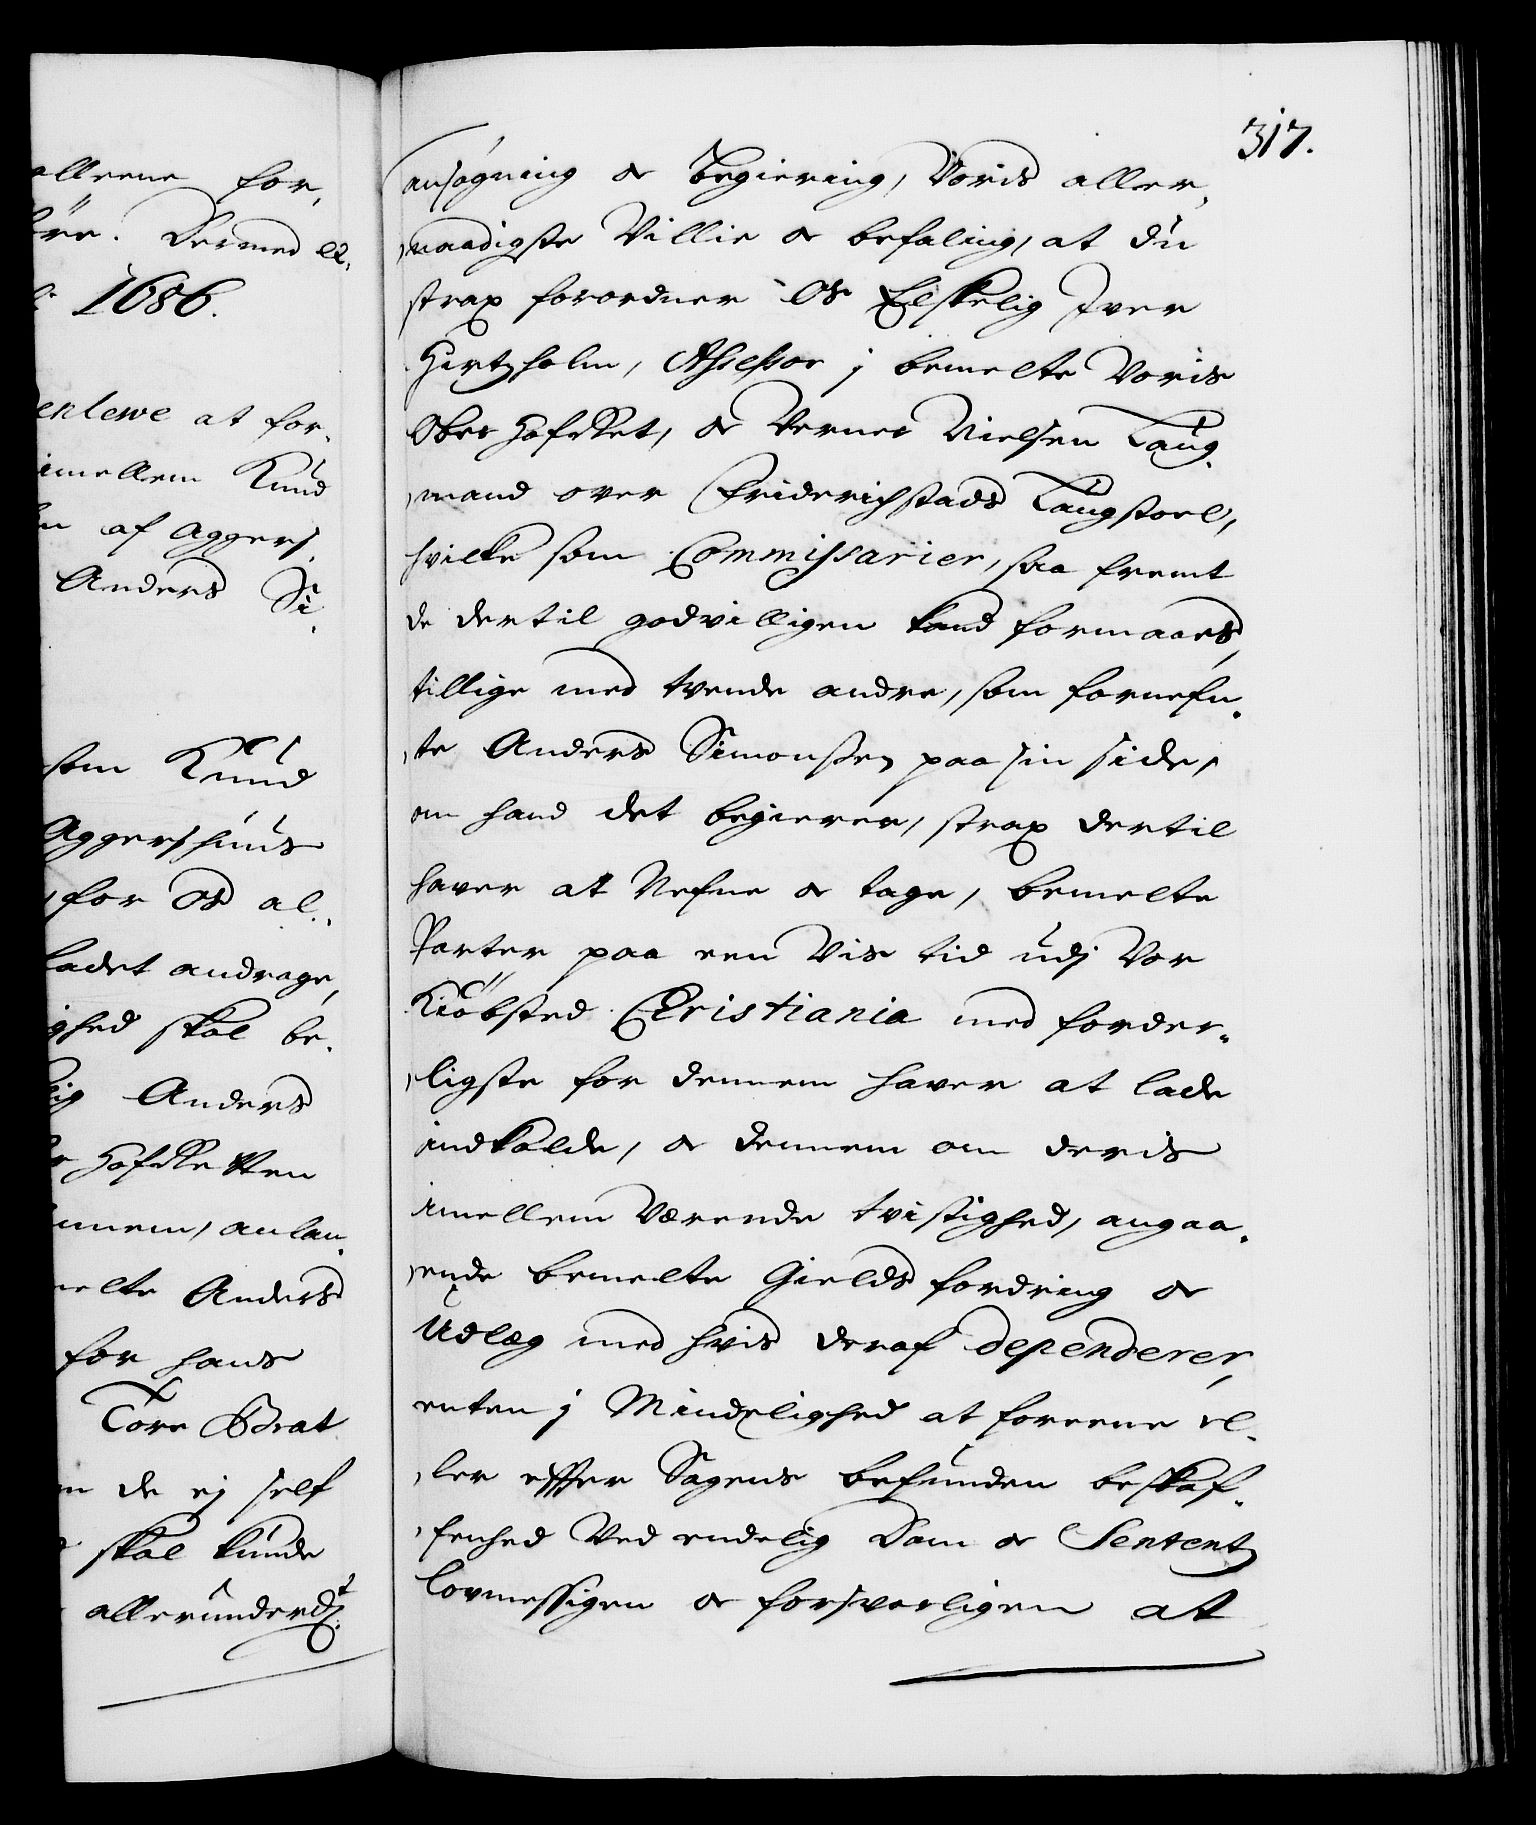 alleene for,
Dermed et.
1686.
enlewe at for.
imellem Knud
af Aggers,
Anders Si.
som Knud
Aggershuus
for Os al.
ladet andrage,
ighed skal be.
Anders
HofRetten
anlan.
melte Anders
for hans
Tore Brat
de ej self
skal kunde
allerunderd:t
317.
ansøgning og Begiering, Voris aller,
naadigste Villie og befaling, at du
strax forordner Os Elskelig Iver
Hertzholm, Assessor j bemelte Voris
Ober HofRet, og Verner Nielsen Laug.
mand over Friderichstads Laugstoel,
hvilke som Commissarier, saa fremt
de dertil godvilligen kand formaaes,
tillige med tvende andre, som fornefn.
te Anders Simonsen paa sin side,
om hand det begierer, strax dertil
haver at Nefne og tage, bemelte
Parter paa een Vis tid udj Vor
Kiøbsted Christiania med forder,,
ligste for dennem haver at lade
indkalde, og dennem om deris
imellem Værende tvistighed, angaa.
ende bemelte Gields fordring og
Udlæg med hvis deraf dependerer,
enten j Mindelighed at foreene el.
ler efter Sagens befunden beskaf.
fenhed Ved endelig Dom og Sententz
lovmessigen og forsvarligen at